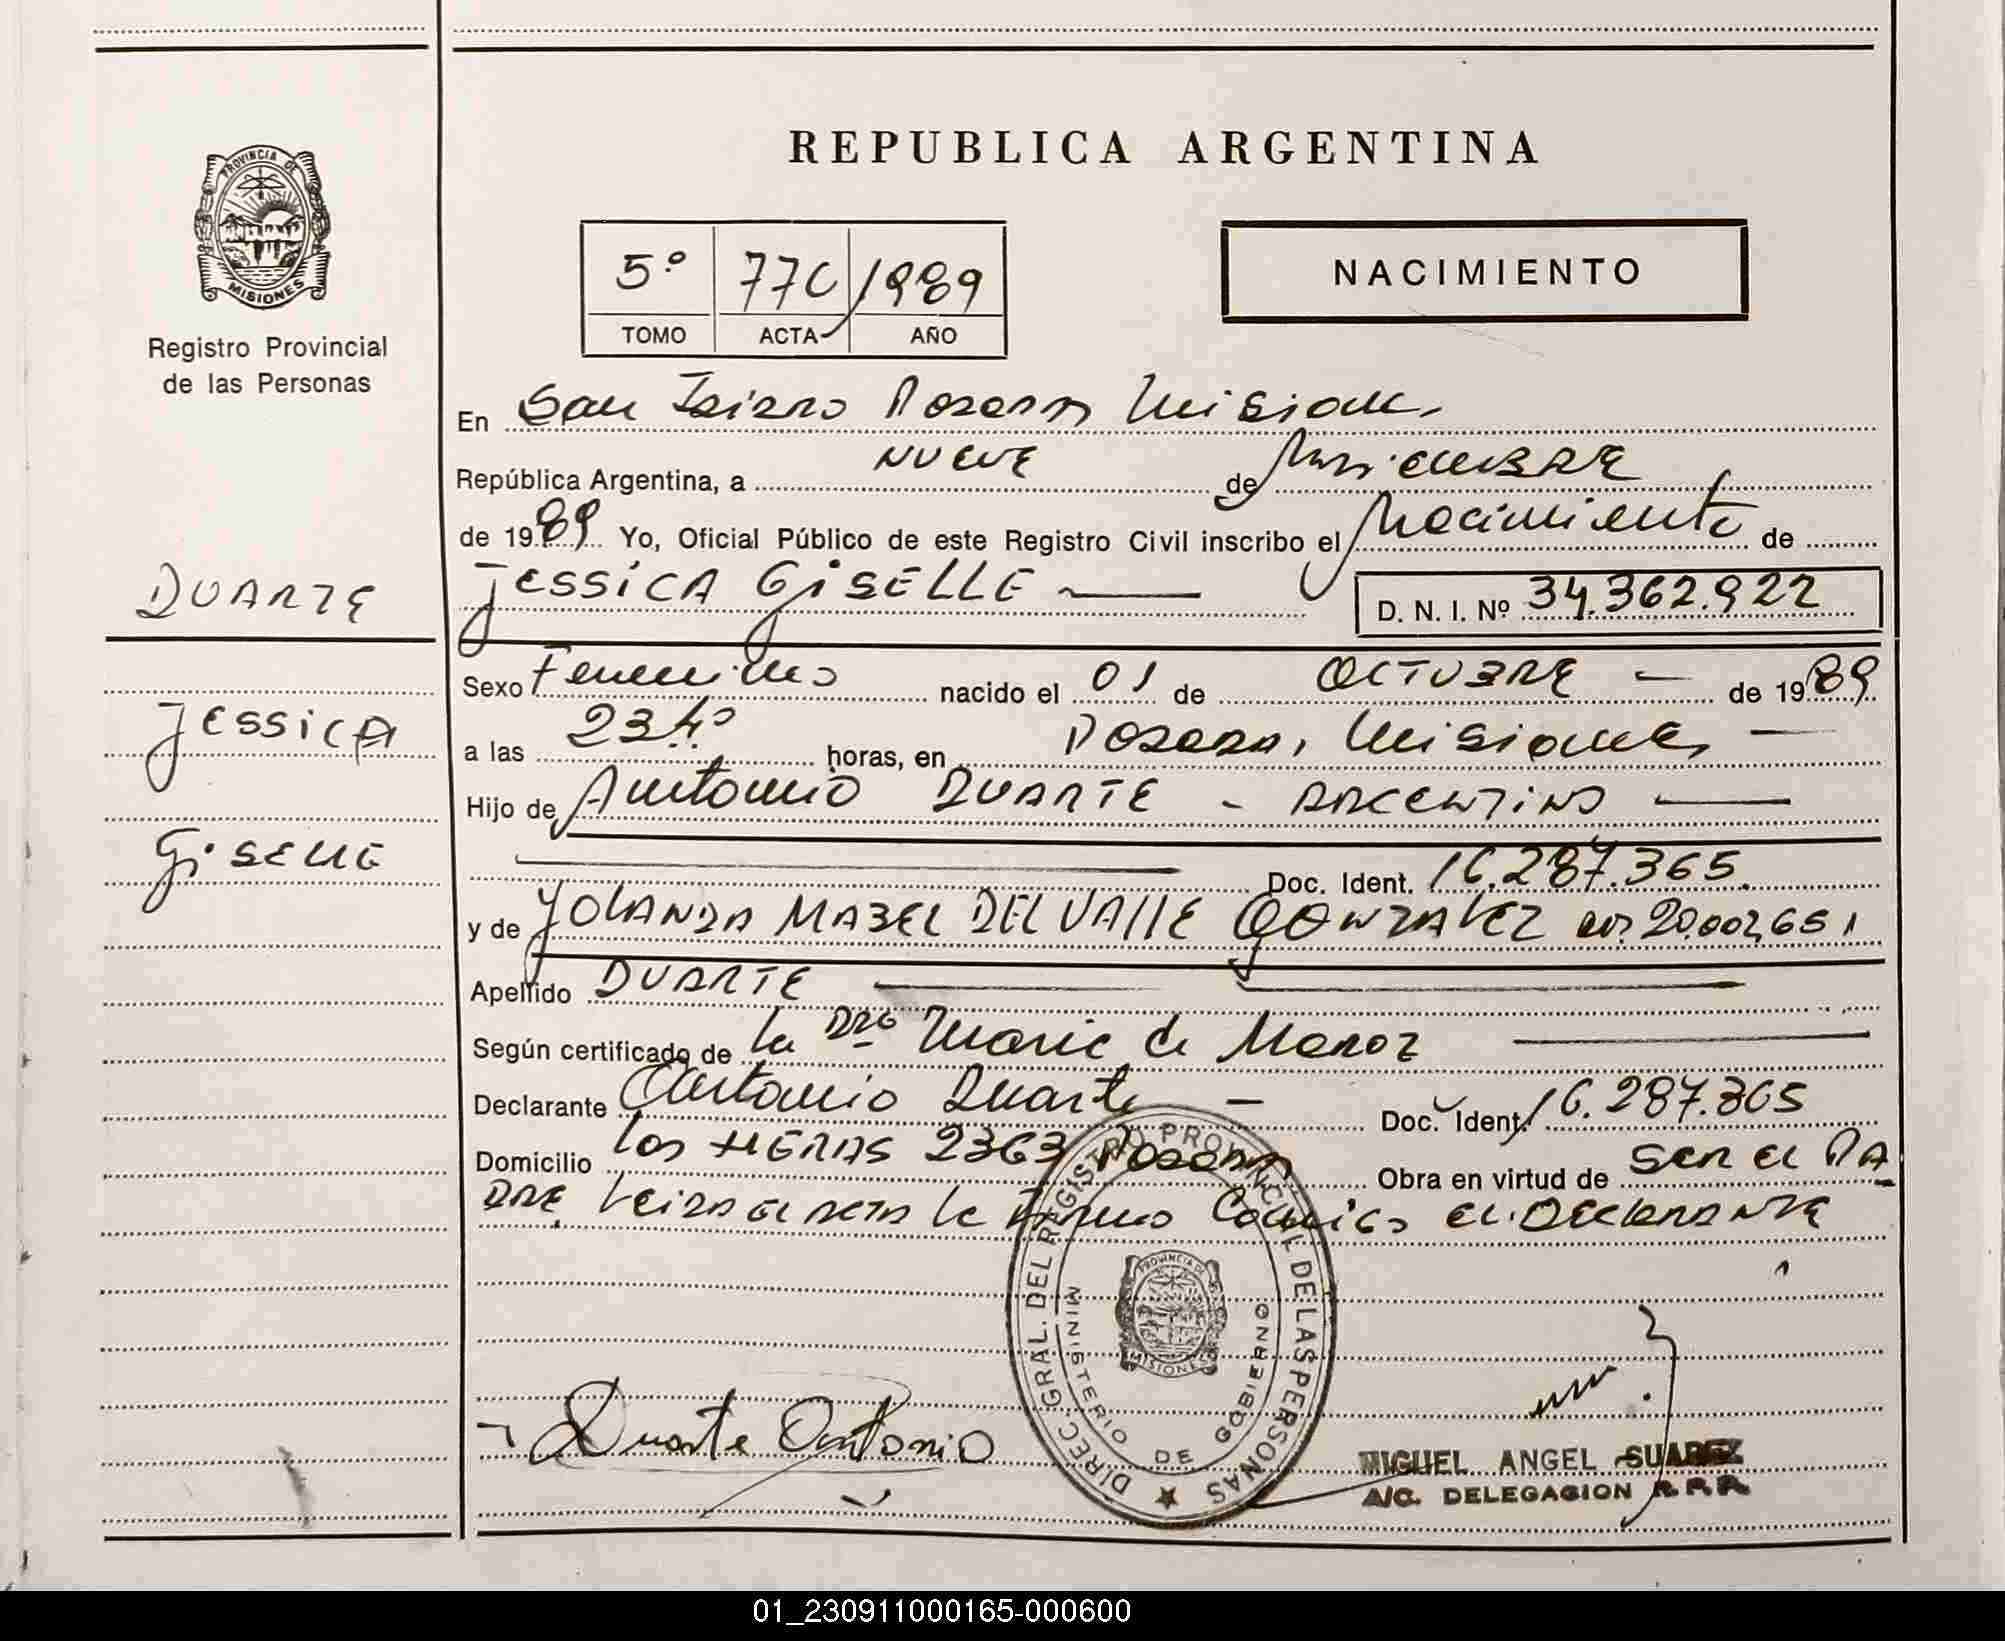 REPUBLICA ARGENTINA
PROVINCIA DE
MISIONES
Registro Provincial
de las Personas
5º 1989
TOMO ACTA AÑO
NACIMIENTO
En San Isidro Posadas Misiones
República Argentina, a NUEVE de Noviembre
de 1989 Yo, Oficial Público de este Registro Civil inscribo el Nacimiento de
JESSICA GISELLE
D. N. I. Nº 34.362.922
DUARTE
JESSICA
GISELLE
Sexo Femenino nacido el 01 de OCTUBRE de 1989
a las 23 hs horas, en Posadas, Misiones
Hijo de Antonio DUARTE - ARGENTINO
Doc. Ident. 16.287.365.
y de YOLANDA MABEL DEL VALLE GONZALEZ 20.002,651
Apellido DUARTE
Según certificado de la Dra Marie de
Declarante Antonio Duarte - Doc. Ident. 16.287.365
Domicilio las HERAS 2363 Posadas Obra en virtud de ser el PA
DRE leida el acta la firma conmigo el Declarante
DIREC. GRAL. DEL REGISTRO PROVINCIAL DE LAS PERSONAS
MINISTERIO DE GOBIERNO
PROVINCIA DE
MISIONES
Duarte Antonio
MIGUEL ANGEL SUAREZ
A/C. DELEGACION R. P. P.
01_230911000165-000600